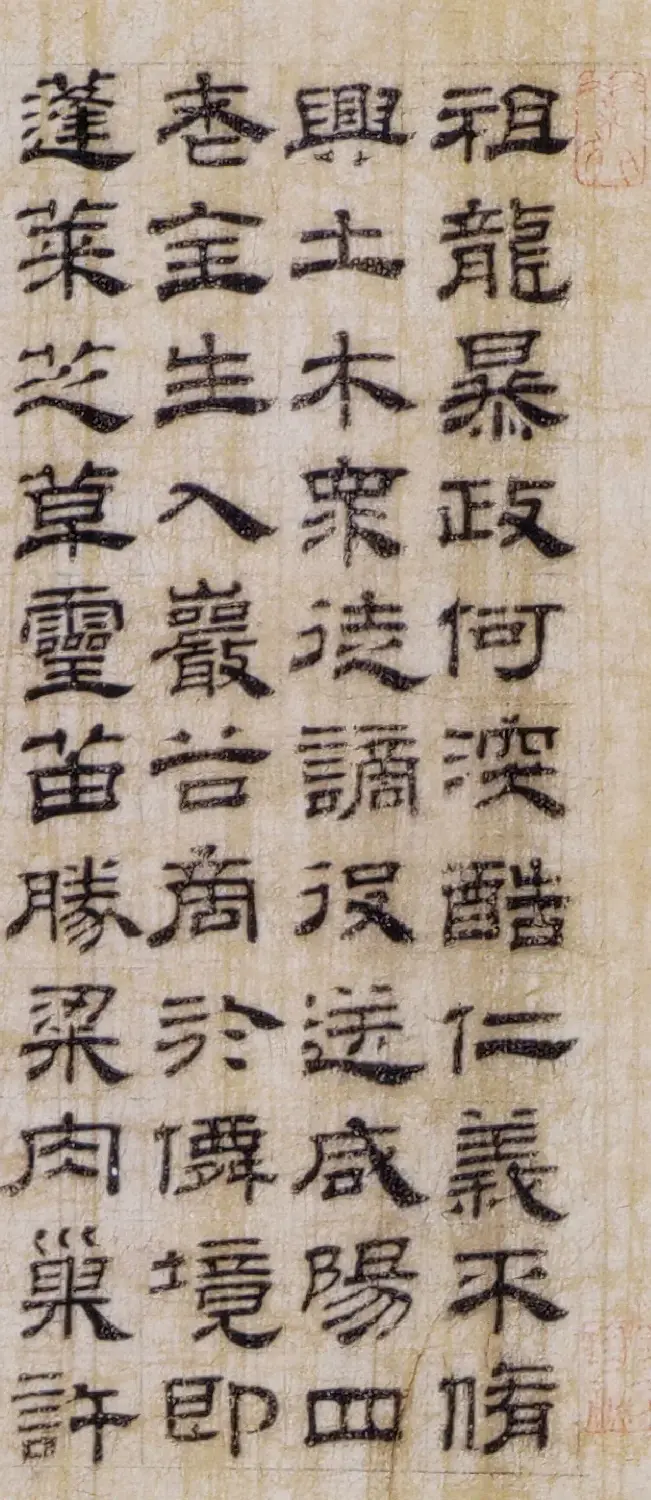 祖龍暴政何深酷仁義不脩
興土木衆徒謫役送咸陽四
老全生入巖谷商於僊境即
蓬萊芝草靈苗勝粱肉巢許